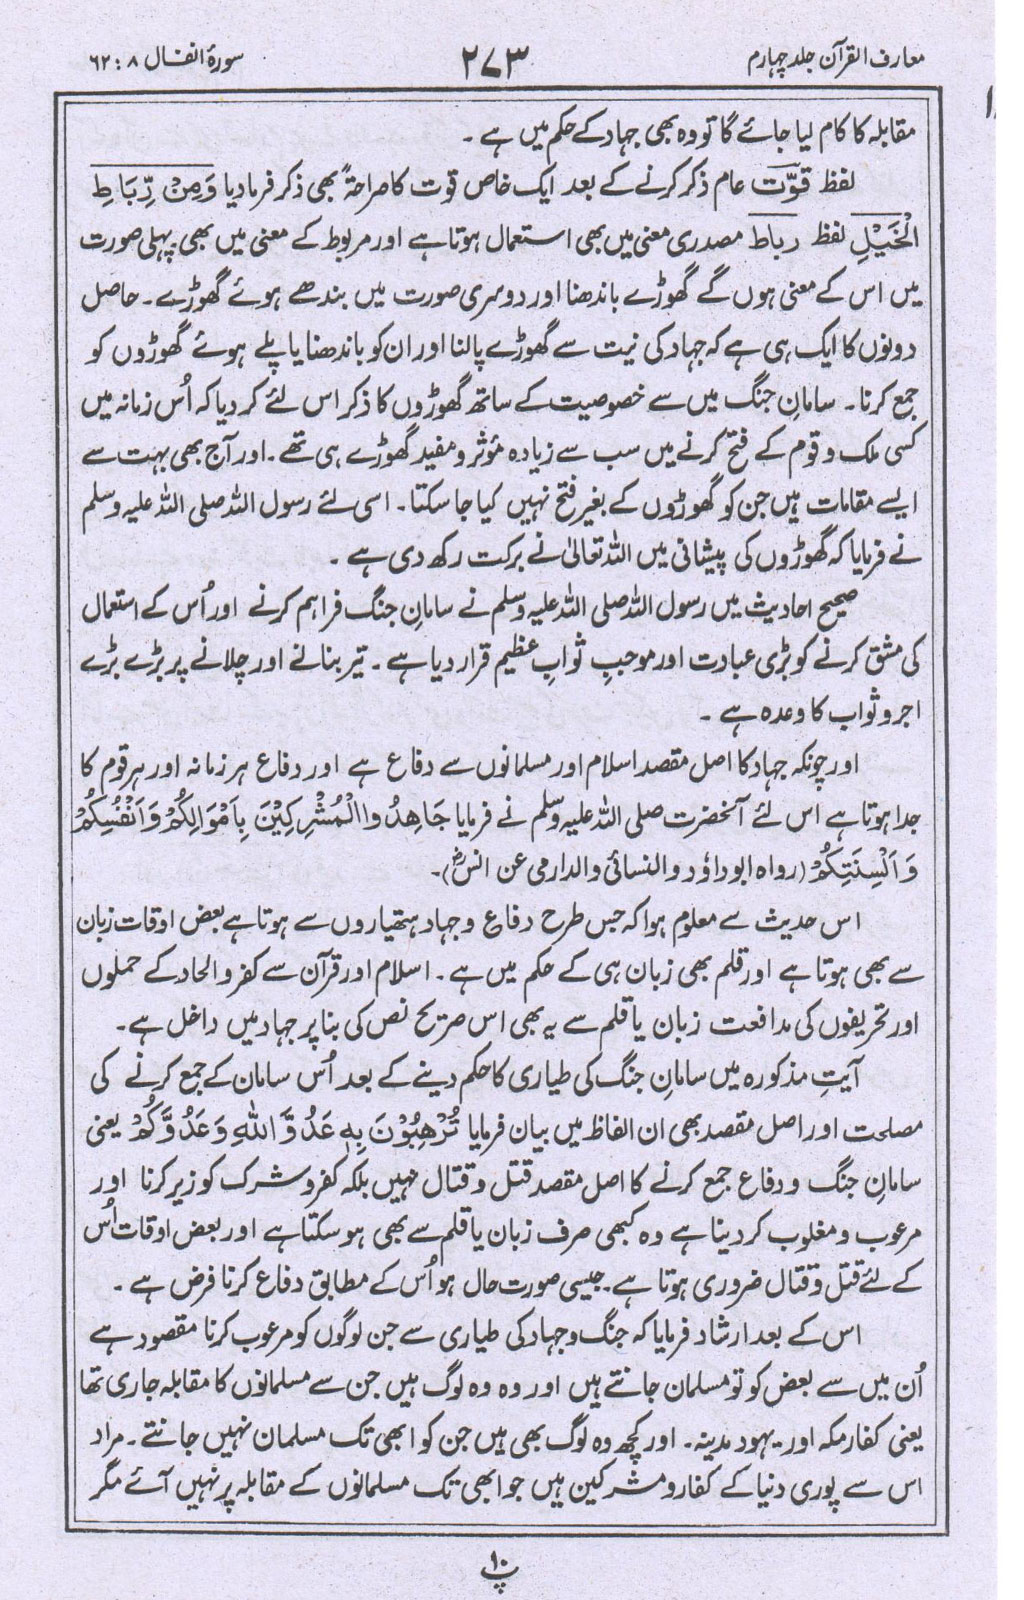 معارف القرآن جلد چہارم
۲۷۳
سورۂ انفال ۸ : ۶۲
مقابلہ کا کام لیا جائے گا تو وہ بھی جہاد کے حکم میں ہے۔
لفظ قوّت عام ذکر کرنے کے بعد ایک خاص قوت کا صراحۃً بھی ذکر فرما دیا وَمِنْ رِّبَاطِ
الْخَيْلِ لفظ رباط مصدری معنی میں بھی استعمال ہوتا ہے اور مربوط کے معنی میں بھی پہلی صورت
میں اس کے معنی ہوں گے گھوڑے باندھنا اور دوسری صورت میں بندھے ہوئے گھوڑے۔ حاصل
دونوں کا ایک ہی ہے کہ جہاد کی نیت سے گھوڑے پالنا اور ان کو باندھنا یا پلے ہوئے گھوڑوں کو
جمع کرنا۔ سامانِ جنگ میں سے خصوصیت کے ساتھ گھوڑوں کا ذکر اس لئے کر دیا کہ اُس زمانہ میں
کسی ملک و قوم کے فتح کرنے میں سب سے زیادہ مؤثر و مفید گھوڑے ہی تھے۔ اور آج بھی بہت سے
ایسے مقامات ہیں جن کو گھوڑوں کے بغیر فتح نہیں کیا جا سکتا۔ اسی لئے رسول اللہ صلی اللہ علیہ وسلم
نے فرمایا کہ گھوڑوں کی پیشانی میں اللہ تعالیٰ نے برکت رکھ دی ہے۔
صحیح احادیث میں رسول اللہ صلی اللہ علیہ وسلم نے سامانِ جنگ فراہم کرنے اور اُس کے استعمال
کی مشق کرنے کو بڑی عبادت اور موجبِ ثوابِ عظیم قرار دیا ہے۔ تیر بنانے اور چلانے پر بڑے بڑے
اجر و ثواب کا وعدہ ہے۔
اور چونکہ جہاد کا اصل مقصد اسلام اور مسلمانوں سے دفاع ہے اور دفاع ہر زمانہ اور ہر قوم کا
جدا ہوتا ہے اس لئے آنحضرت صلی اللہ علیہ وسلم نے فرمایا جَاهِدُوا الْمُشْرِكِيْنَ بِاَمْوَالِكُمْ وَاَنْفُسِكُمْ
وَاَلْسِنَتِكُمْ (رواہ ابوداؤد والنسائی والدارمی عن انسؓ)۔
اس حدیث سے معلوم ہوا کہ جس طرح دفاع و جہاد ہتھیاروں سے ہوتا ہے بعض اوقات زبان
سے بھی ہوتا ہے اور قلم بھی زبان ہی کے حکم میں ہے۔ اسلام اور قرآن سے کفر و الحاد کے حملوں
اور تحریفوں کی مدافعت زبان یا قلم سے یہ بھی اس صریح نص کی بنا پر جہاد میں داخل ہے۔
آیتِ مذکورہ میں سامانِ جنگ کی طیاری کا حکم دینے کے بعد اُس سامان کے جمع کرنے کی
مصلحت اور اصل مقصد بھی ان الفاظ میں بیان فرمایا تُرْهِبُوْنَ بِهٖ عَدُوَّ اللّٰهِ وَعَدُوَّكُمْ یعنی
سامانِ جنگ و دفاع جمع کرنے کا اصل مقصد قتل و قتال نہیں بلکہ کفر و شرک کو زیر کرنا اور
مرعوب و مغلوب کر دینا ہے وہ کبھی صرف زبان یا قلم سے بھی ہو سکتا ہے اور بعض اوقات اُس
کے لئے قتل و قتال ضروری ہوتا ہے۔ جیسی صورت حال ہو اُس کے مطابق دفاع کرنا فرض ہے۔
اس کے بعد ارشاد فرمایا کہ جنگ و جہاد کی طیاری سے جن لوگوں کو مرعوب کرنا مقصود ہے
اُن میں سے بعض کو تو مسلمان جانتے ہیں اور وہ وہ لوگ ہیں جن سے مسلمانوں کا مقابلہ جاری تھا
یعنی کفار مکہ اور یہود مدینہ۔ اور کچھ وہ لوگ بھی ہیں جن کو ابھی تک مسلمان نہیں جانتے۔ مراد
اس سے پوری دنیا کے کفار و مشرکین ہیں جو ابھی تک مسلمانوں کے مقابلہ پر نہیں آئے مگر
پ۱۰